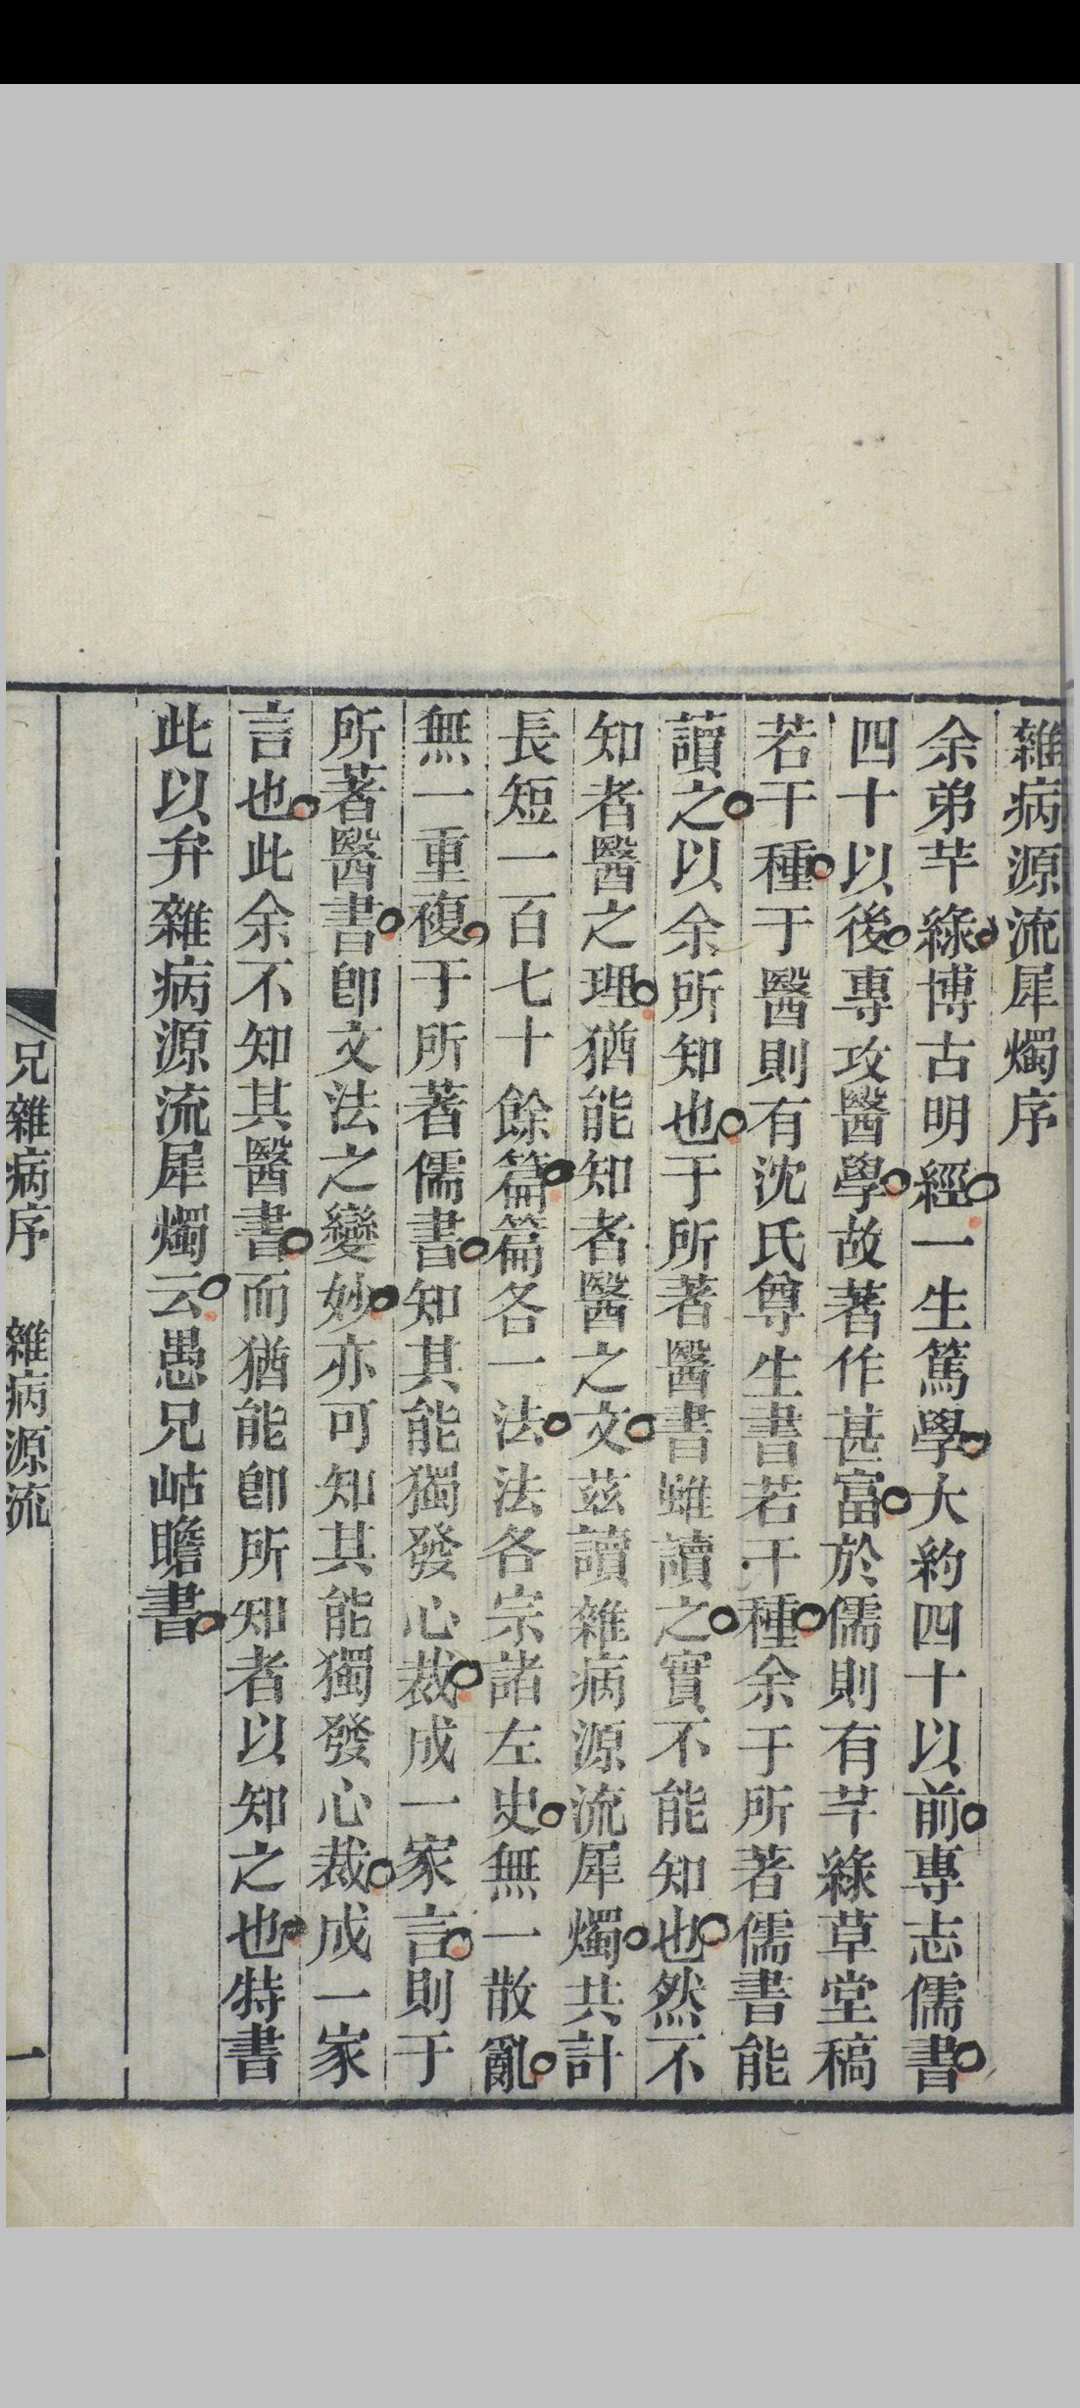 雜病源流犀燭序
余弟芊綠博古明經一生篤學大約四十以前專志儒書
四十以後專攻醫學故著作甚富於儒則有芊綠草堂稿
若干種于醫則有沈氏尊生書若干種余于所著儒書能
讀之以余所知也于所著醫書雖讀之實不能知也然不
知者醫之理猶能知者醫之文茲讀雜病源流犀燭共計
長短一百七十餘篇篇各一法法各宗諸左史無一散亂
無一重複于所著儒書知其能獨發心裁成一家言則于
所著醫書卽文法之變妙亦可知其能獨發心裁成一家
言也此余不知其醫書而猶能卽所知者以知之也特書
此以弁雜病源流犀燭云愚兄岵瞻書
兄雜病序 雜病源流 一